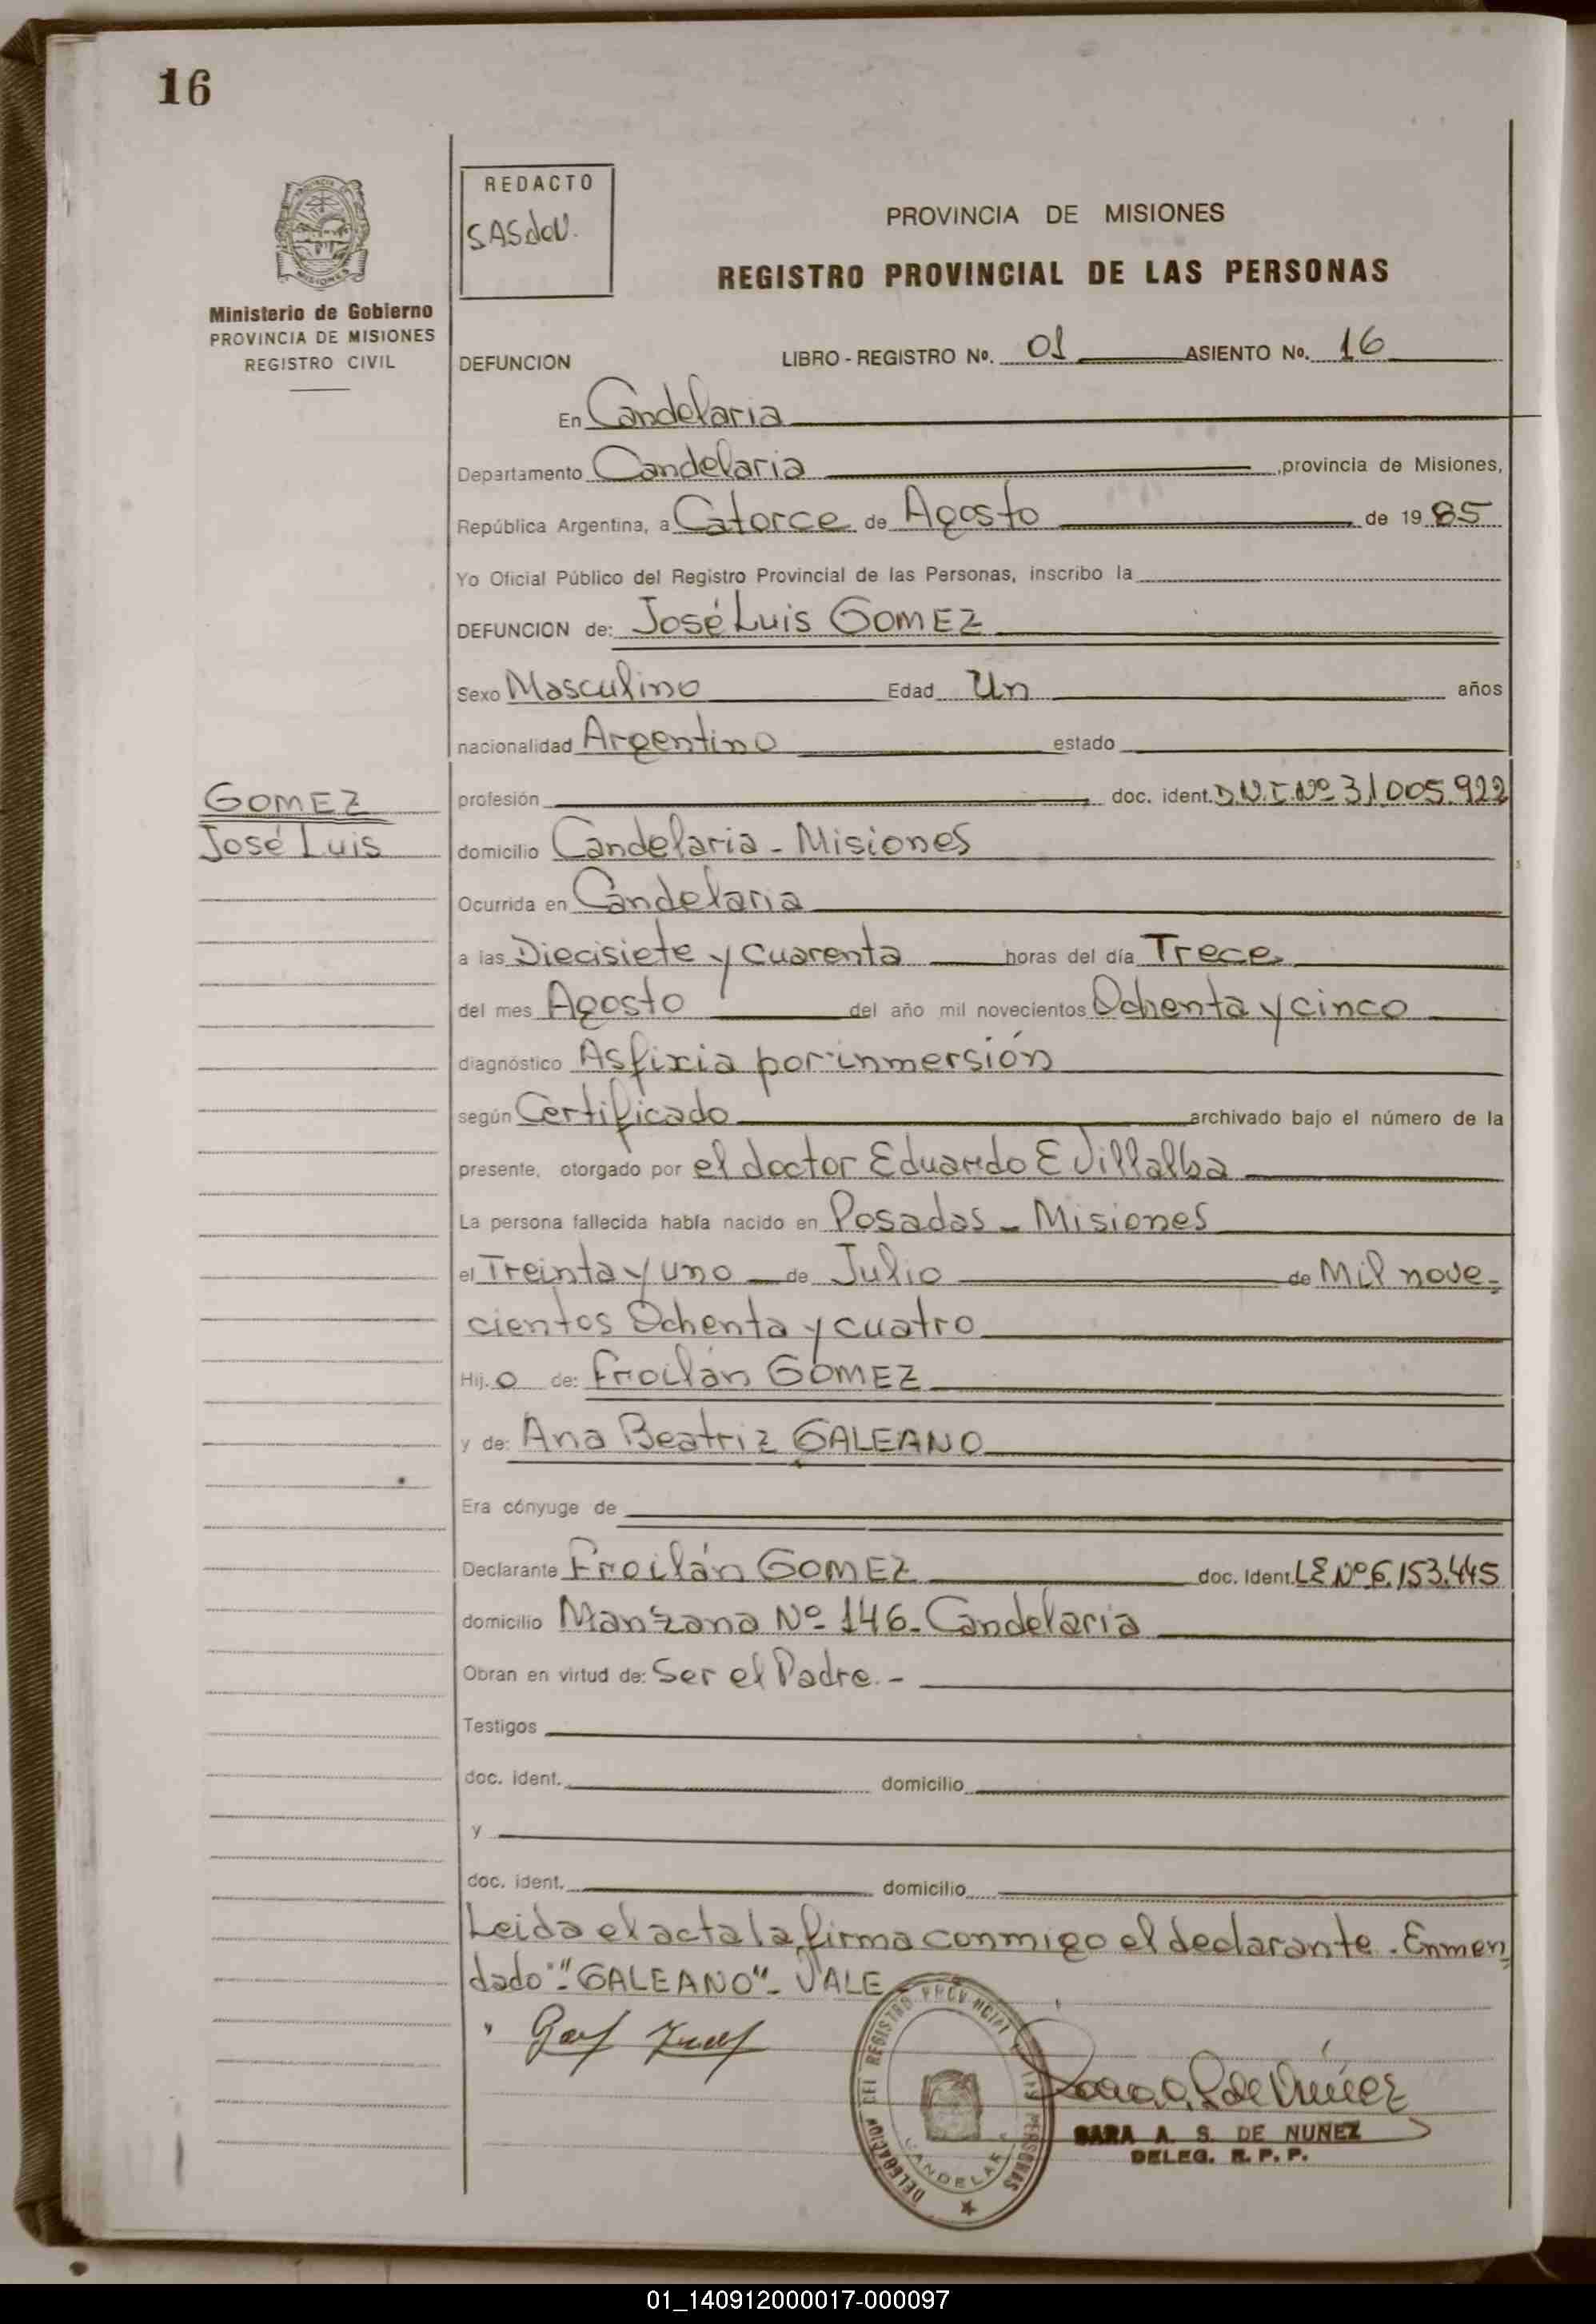 16
REDACTO
SASdeN.
PROVINCIA DE MISIONES
REGISTRO PROVINCIAL DE LAS PERSONAS
Ministerio de Gobierno
PROVINCIA DE MISIONES
REGISTRO CIVIL
DEFUNCION LIBRO - REGISTRO No. 01 ASIENTO No. 16
En Candelaria
Departamento Candelaria, provincia de Misiones,
República Argentina, a Catorce de Agosto de 1985
Yo Oficial Público del Registro Provincial de las Personas, inscribo la
DEFUNCION de: José Luis GOMEZ
Sexo Masculino Edad Un años
nacionalidad Argentino estado
GOMEZ
José Luis
profesión doc. ident. D.N.I. Nº 31.005.922
domicilio Candelaria - Misiones
Ocurrida en Candelaria
a las Diecisiete y cuarenta horas del día Trece
del mes Agosto del año mil novecientos Ochenta y cinco
diagnóstico Asfixia por inmersión
según Certificado archivado bajo el número de la
presente, otorgado por el doctor Eduardo E Villalba
La persona fallecida había nacido en Posadas - Misiones
el Treinta y uno de Julio de Mil nove-
cientos Ochenta y cuatro
Hij.o de: Froilán GOMEZ
y de: Ana Beatriz GALEANO
Era cónyuge de
Declarante Froilán GOMEZ doc. Ident. LE Nº 6.153.445
domicilio Manzana Nº 146- Candelaria
Obran en virtud de: Ser el Padre.-
Testigos
doc. ident. domicilio
y
doc. ident. domicilio
Leida el acta la firma conmigo el declarante. Enmen-
dado: "GALEANO"- VALE
DELEGACION DEL REGISTRO PROVINCIAL PERSONAS
CANDELAR
SARA A. S. DE NUÑEZ
DELEG. R. P. P.
01_140912000017-000097